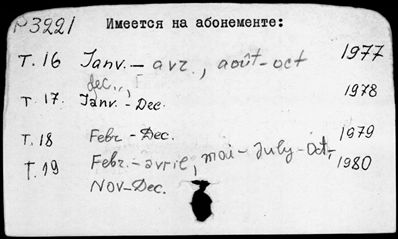 P3221 Имеется на абонементе:
Т. 16 Janv. - avr., août-oct 1977
dec.,
т. 17. Janv. - Dec. 1978
Т. 18 Febr - Dec. 1979
Т. 19 Febr. - avril, mai - July - Oct, 1980
Nov-Dec.